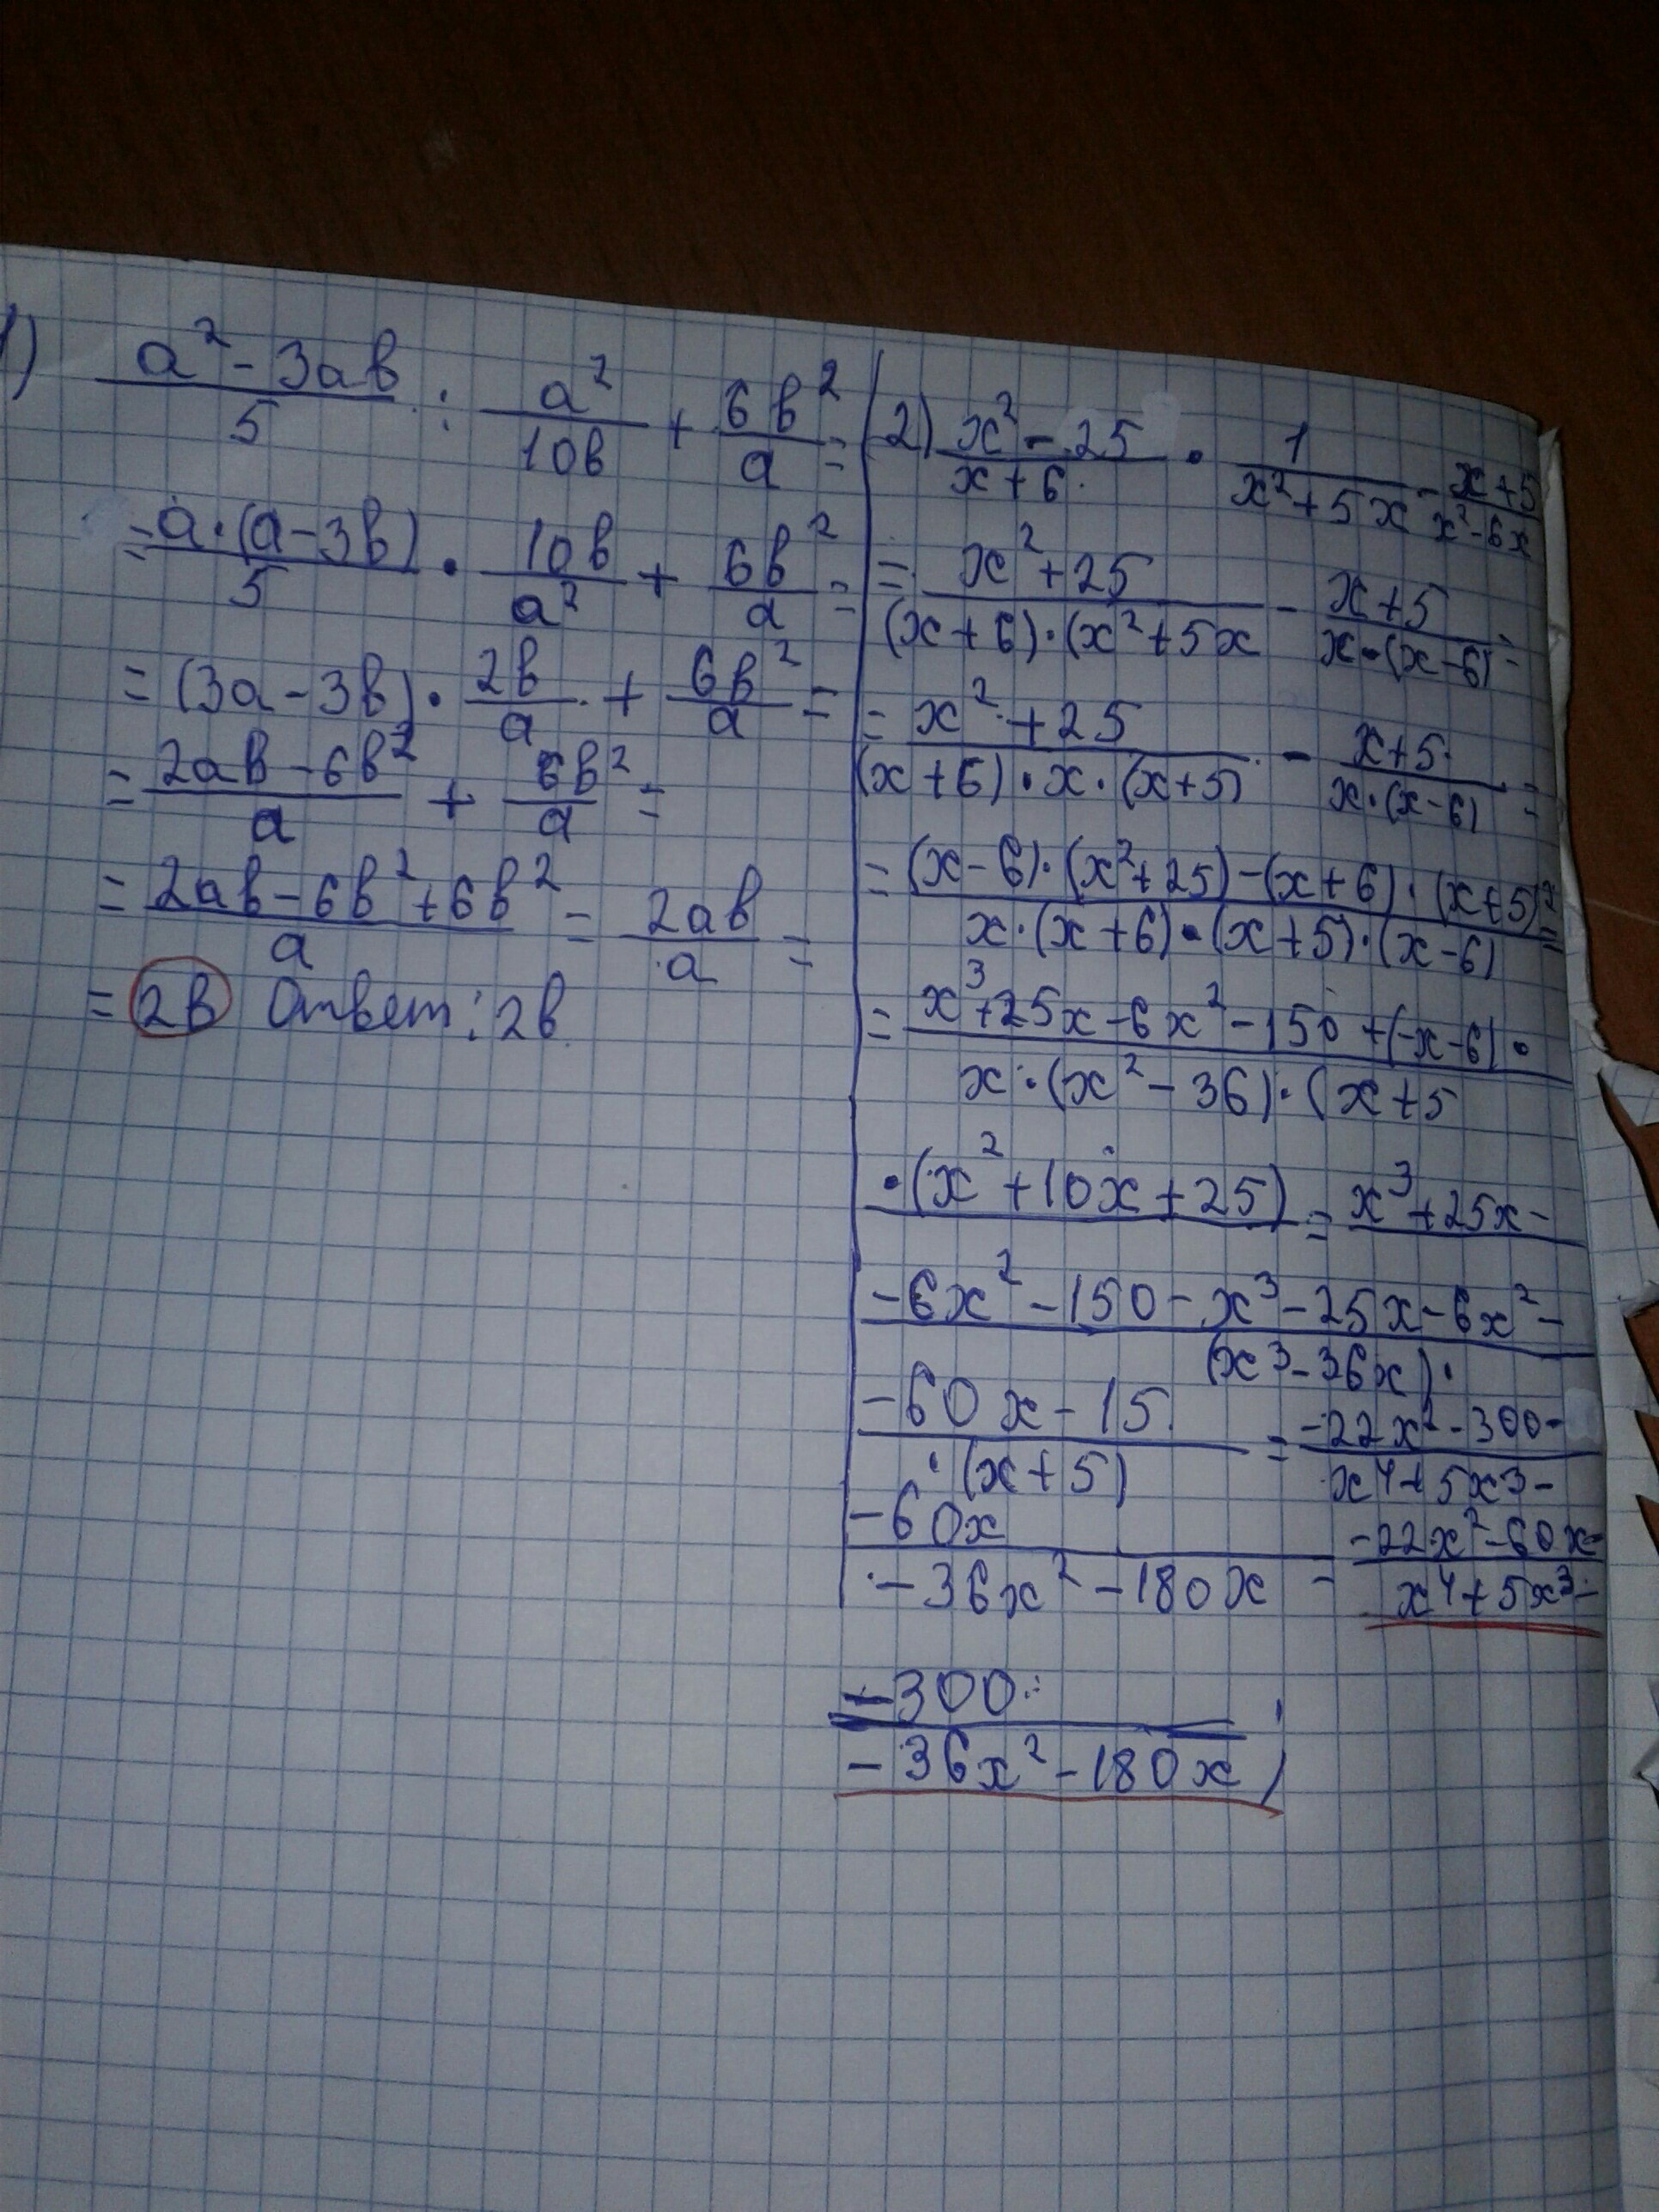 1) (a² - 3ab)/5 : a²/(10b) + 6b²/a =
= a·(a-3b)/5 · 10b/a² + 6b²/a =
= (3a-3b) · 2b/a + 6b²/a =
= (2ab-6b²)/a + 6b²/a =
= (2ab-6b²+6b²)/a = 2ab/a =
= 2b Ответ: 2b.
2) (x²-25)/(x+6) · 1/(x²+5x) - (x+5)/(x²-6x)
= (x²+25)/((x+6)·(x²+5x) - (x+5)/(x·(x-6)) =
= (x²+25)/((x+6)·x·(x+5)) - (x+5)/(x·(x-6)) =
= ((x-6)·(x²+25)-(x+6)·(x+5)²)/(x·(x+6)·(x+5)·(x-6)) =
= (x³+25x-6x²-150+(-x-6)·)/(x·(x²-36)·(x+5)
·(x²+10x+25) = x³+25x-
-6x²-150-x³-25x-6x²-
(x³-36x)·
-60x-15/·(x+5) = (-22x²-300-)/(x⁴+5x³-)
-60x/(-36x²-180x) = (-22x²-60x-)/(x⁴+5x³-)
-300/(-36x²-180x)